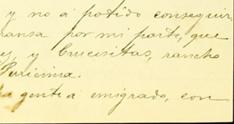 y no á podido conseguir
ansa por mi parte, que
y, y Crucesitas, rancho
Puricima.
a gente á emigrado, con